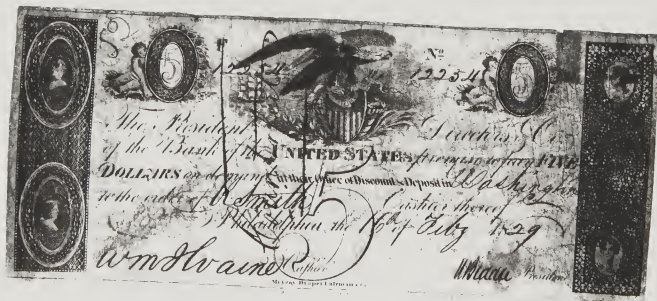 5 5
12254 Nº 12254
The President Directors & Co.
of the Bank of the UNITED STATES promise to pay FIVE
DOLLARS on demand at their Office of Discount & Deposit in Washington
to the order of R Smith Cashier thereof
Philadelphia the 16th of Feby 1829
5
Wm McIlvaine Cashier
N Biddle President
Murray Draper Fairman & Co.